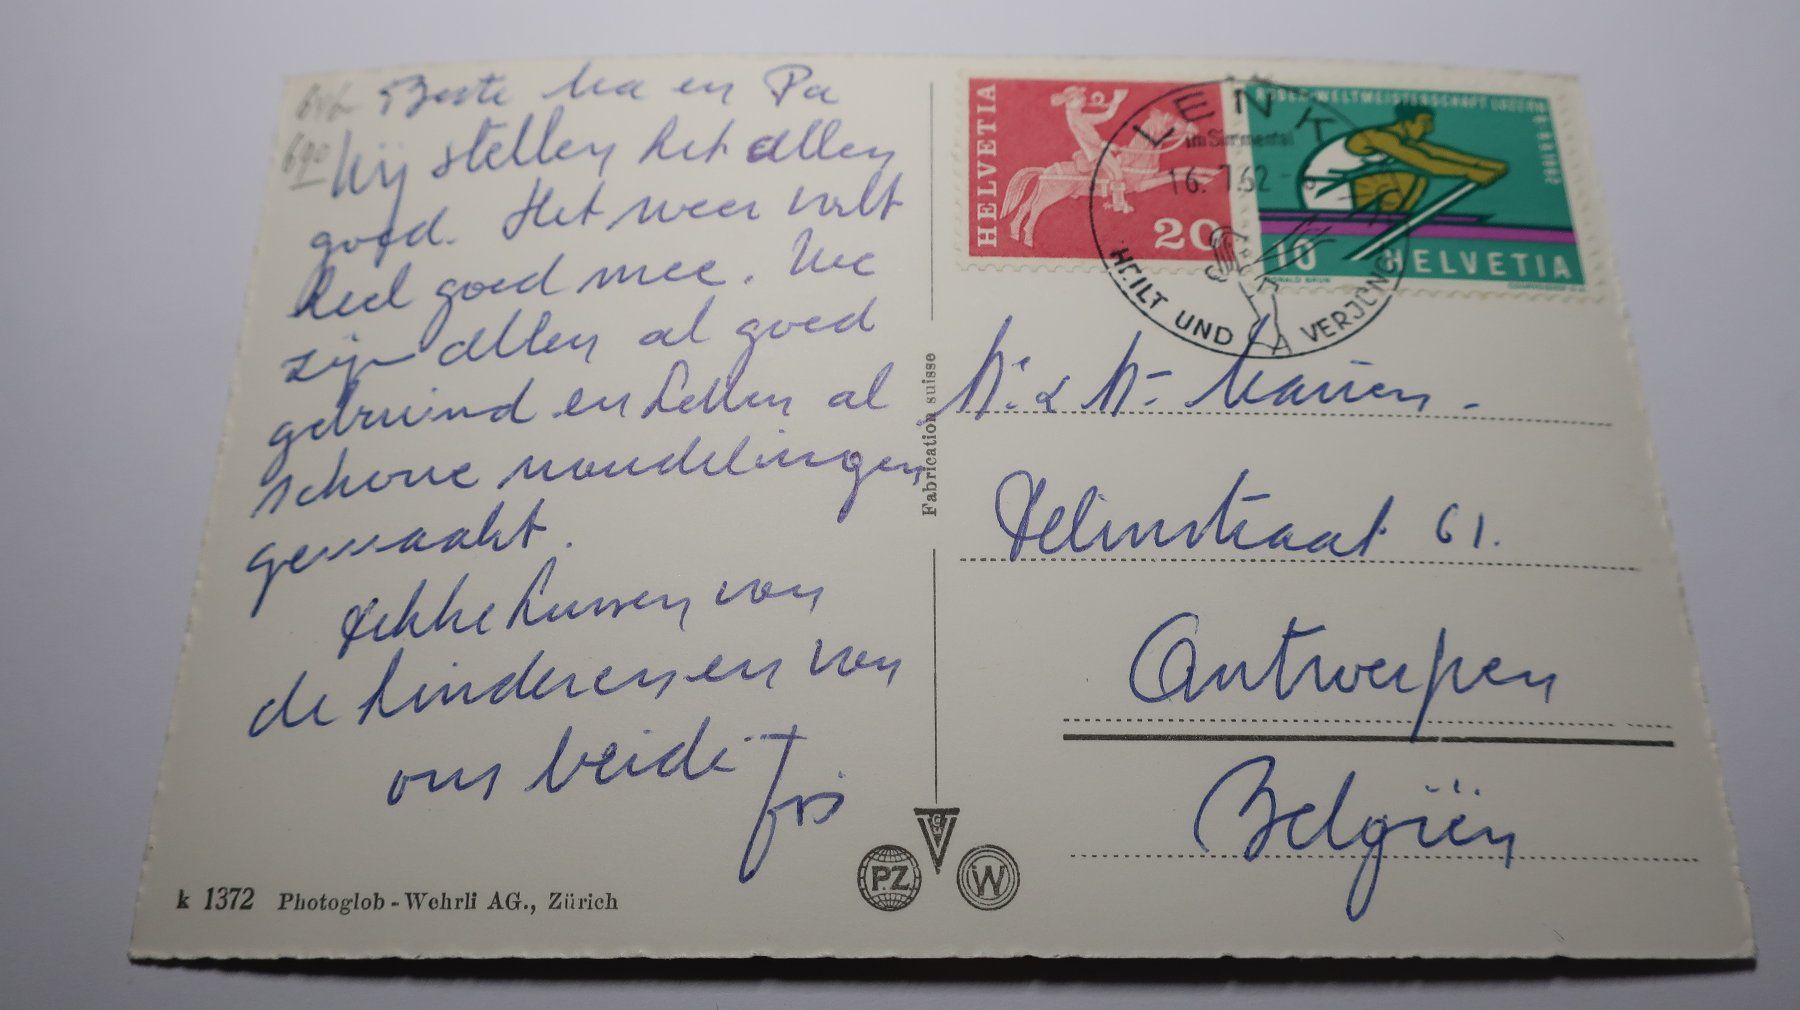 690
Beste Ma en Pa
Wij stellen het allen
goed. Het weer valt
heel goed mee. We
zijn allen al goed
gebruind en hebben al
schone wandelingen
gemaakt.
Dikke kussen van
de kinderen en van
ons beide
Fabrication suisse
k 1372 Photoglob - Wehrli AG., Zürich
PZ
W
HELVETIA
20
RUDER-WELTMEISTERSCHAFT LUZERN
10
HELVETIA
LENK
im Simmental
16. 7.62
HEILT UND VERJÜNGT
Mr & Mme Mariën.
Delinstraat 61.
Antwerpen
Belgiën